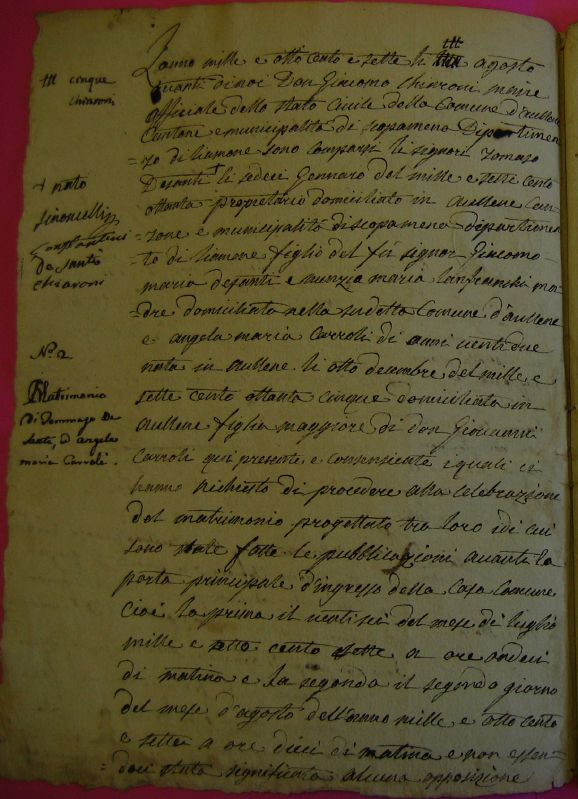 L'anno mille e otto cento e sette li ttt agosto
avanti di noi Don Giacomo Chiaroni maire
officiale dello stato Civile della Comune d'aullene
Cantone e municipalità di scopamena Dipartimen
=to di liamone sono comparsi li signori Tomaso
Desanti li sedeci Gennaro del mille e sette cento
ottanta proprietario domiciliato in aullene Can-
tone e municipalità di scopamena dipartimen
to di liamone figlio del fù signor Giacomo
maria desanti e nunzia maria lanfranchi ma
=dre domiciliata nella sudetta Comune d'aullene
e angela maria Carroli di anni venti due
nata in aullene li otto decembre del mille e
sette cento ottanta cinque domiciliata in
aullene figlia maggiore di don Giovanni
Carroli qui presente e consensiente i quali ci
hanno richiesto di procedere alla celebrazione
del matrimonio progettato tra loro idi cui
sono state fatte le pubblicazioni avanti la
porta principale d'ingresso della Casa Comune
Cioè la prima il venti sei del mese di luglio
mille e otto cento sette a ore undeci
di matina e la segonda il segondo giorno
del mese d'agosto dell'anno mille e otto cento
e sette a ore dieci di matina e non essen
=doci stata significata alcuna opposizione
ttt cinque
chiaroni
+ nato
simoncelli
Costantini
De Santi
chiaroni
N.o 2
Matrimonio
di Tommaso De
Santi, d'angela
maria Carroli.